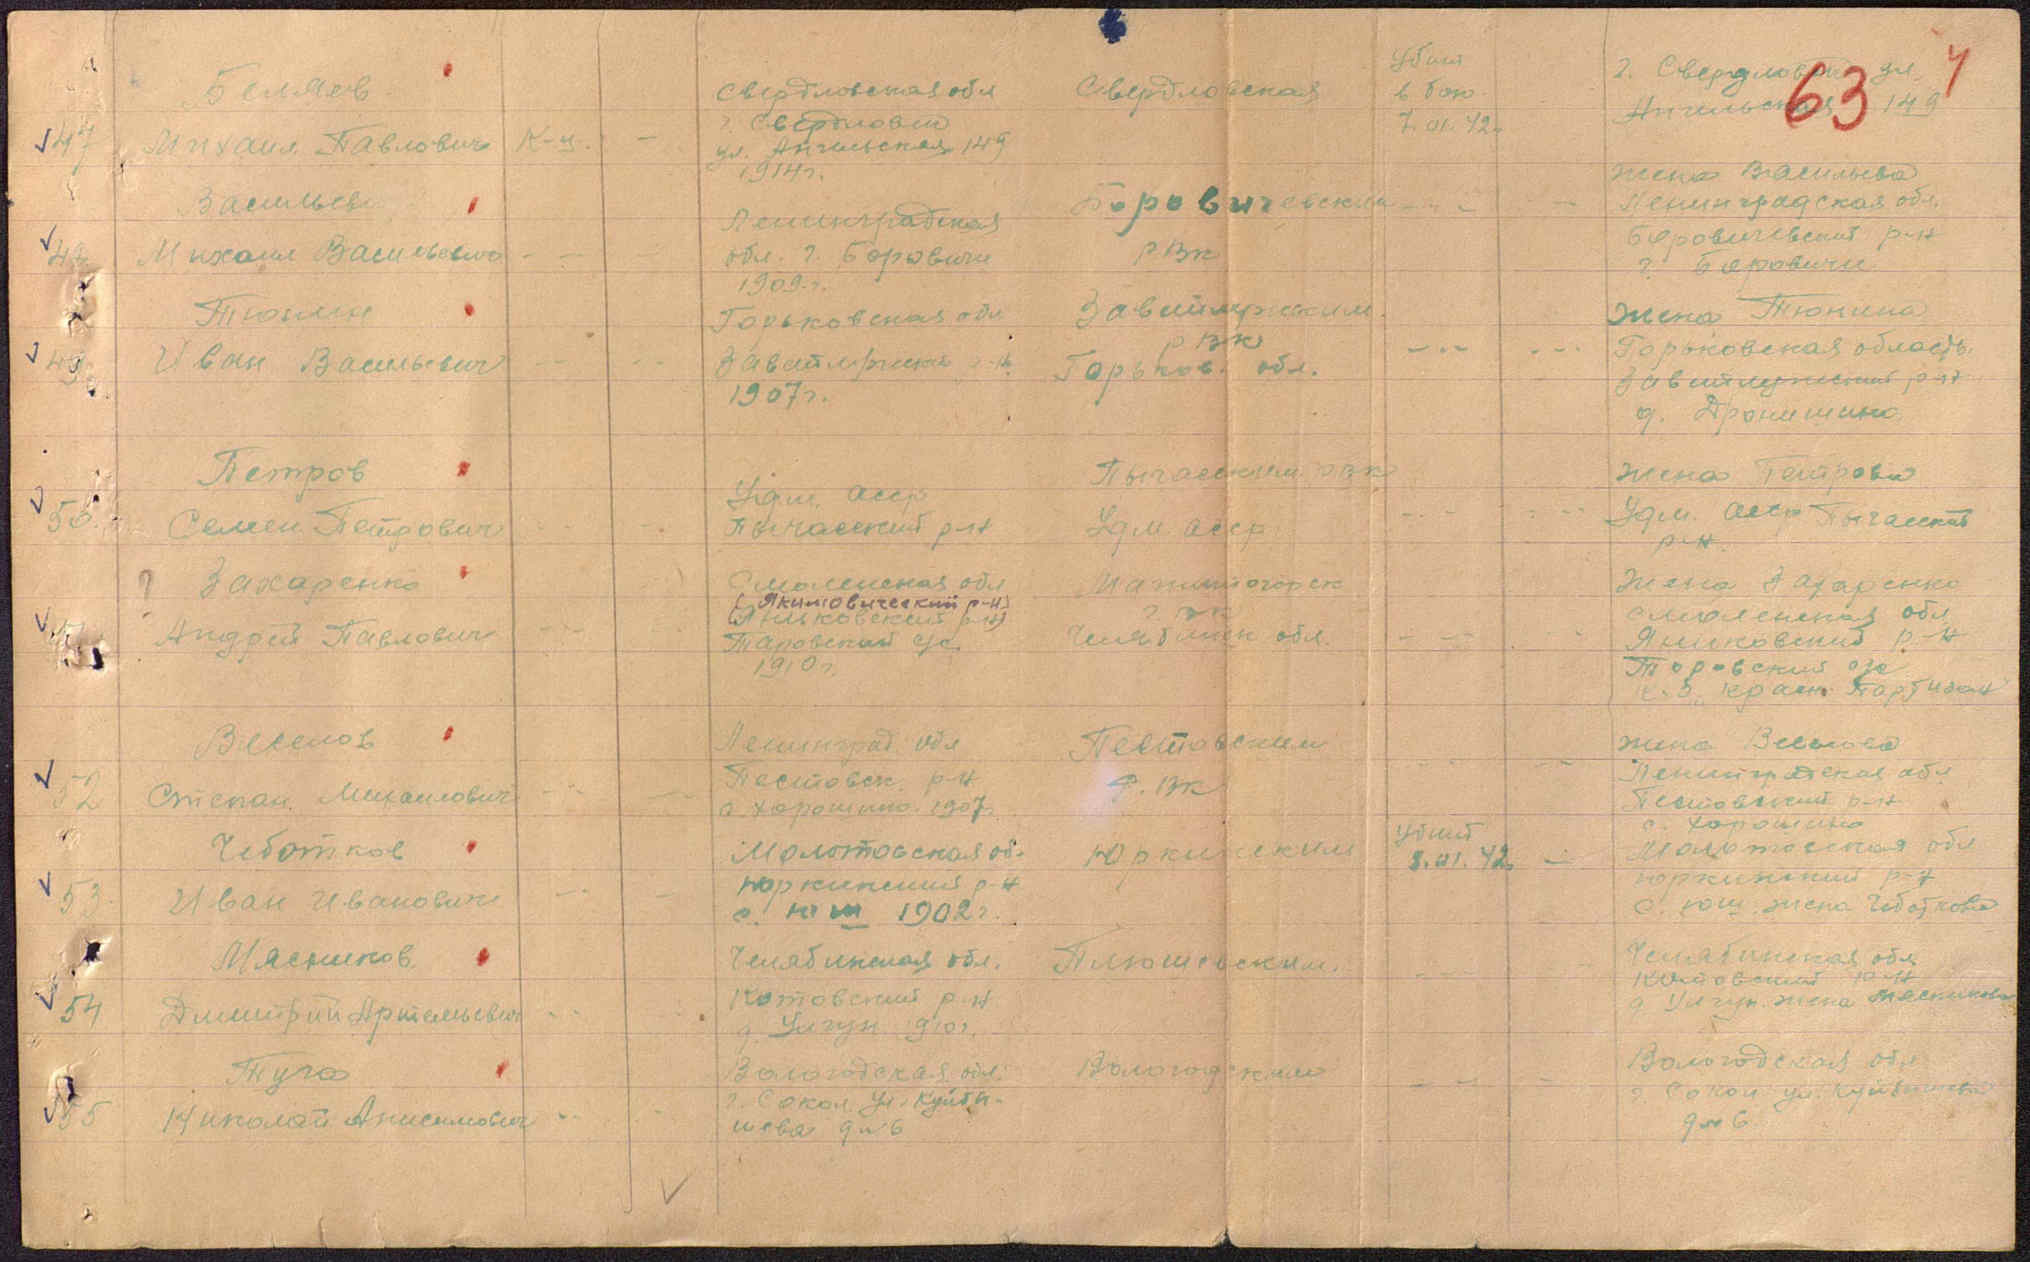 63
4
47
Беляев
Михаил Павлович
К-ц.
-
Свердловская обл
г. Свердловск
ул. Ангильская 149
1914 г.
Свердловская
Убит
в бою
7.01.42.
г. Свердловск ул.
149
48
Васильев
Михаил Васильевич
Ленинградская
обл. г. Боровичи
1909 г.
Боровичевским
РВК
жена Васильева
Ленинградская обл.
Боровичевский р-н
г. Боровичи
49
Тюнин
Иван Васильевич
Горьковская обл
1907 г.
РВК
Горьков. обл.
жена Тюнина
Горьковская область
р-н
д.
50
Петров
Семен Петрович
Удм. асср
Пычасский р-н
Пычасским РВК
Удм. асср
жена Петрова
Удм. асср Пычасский
р-н
?
Захаренко
Андрей Павлович
Смоленская обл
(Якимовический р-н)
р-н
Таровский с/с
1910 г.
Магнитогорск
г. вк
Челябинск обл.
жена Захаренко
Смоленская обл
р-н
Торовский с/с
к-з Красн. Партизан
52
Веселов
Степан Михайлович
Ленинград. обл
Пестовск. р-н
с. Хорошино 1907
Пестовским
р. вк
жена Веселова
Ленинградская обл
Пестовский р-н
с. Хорошино
53
Чеботков
Иван Иванович
Молотовская об.
Юркинский р-н
с. Юш 1902 г.
Юркинским
Убит
8.01.42.
Молотовская обл
Юркинский р-н
с. Юш. жена Чеботкова
54
Мясников
Дмитрий Артемьевич
Челябинская обл.
Котовский р-н
д. Улгун 1910 г.
Челябинская обл
Котовский р-н
д Улгун. жена Мясникова
55
Туча
Николай Анисимович
Вологодская обл.
г. Сокол ул. Куйбы-
шева д№ 6
Вологодским
Вологодская обл
г. Сокол ул. Куйбышева
д№ 6